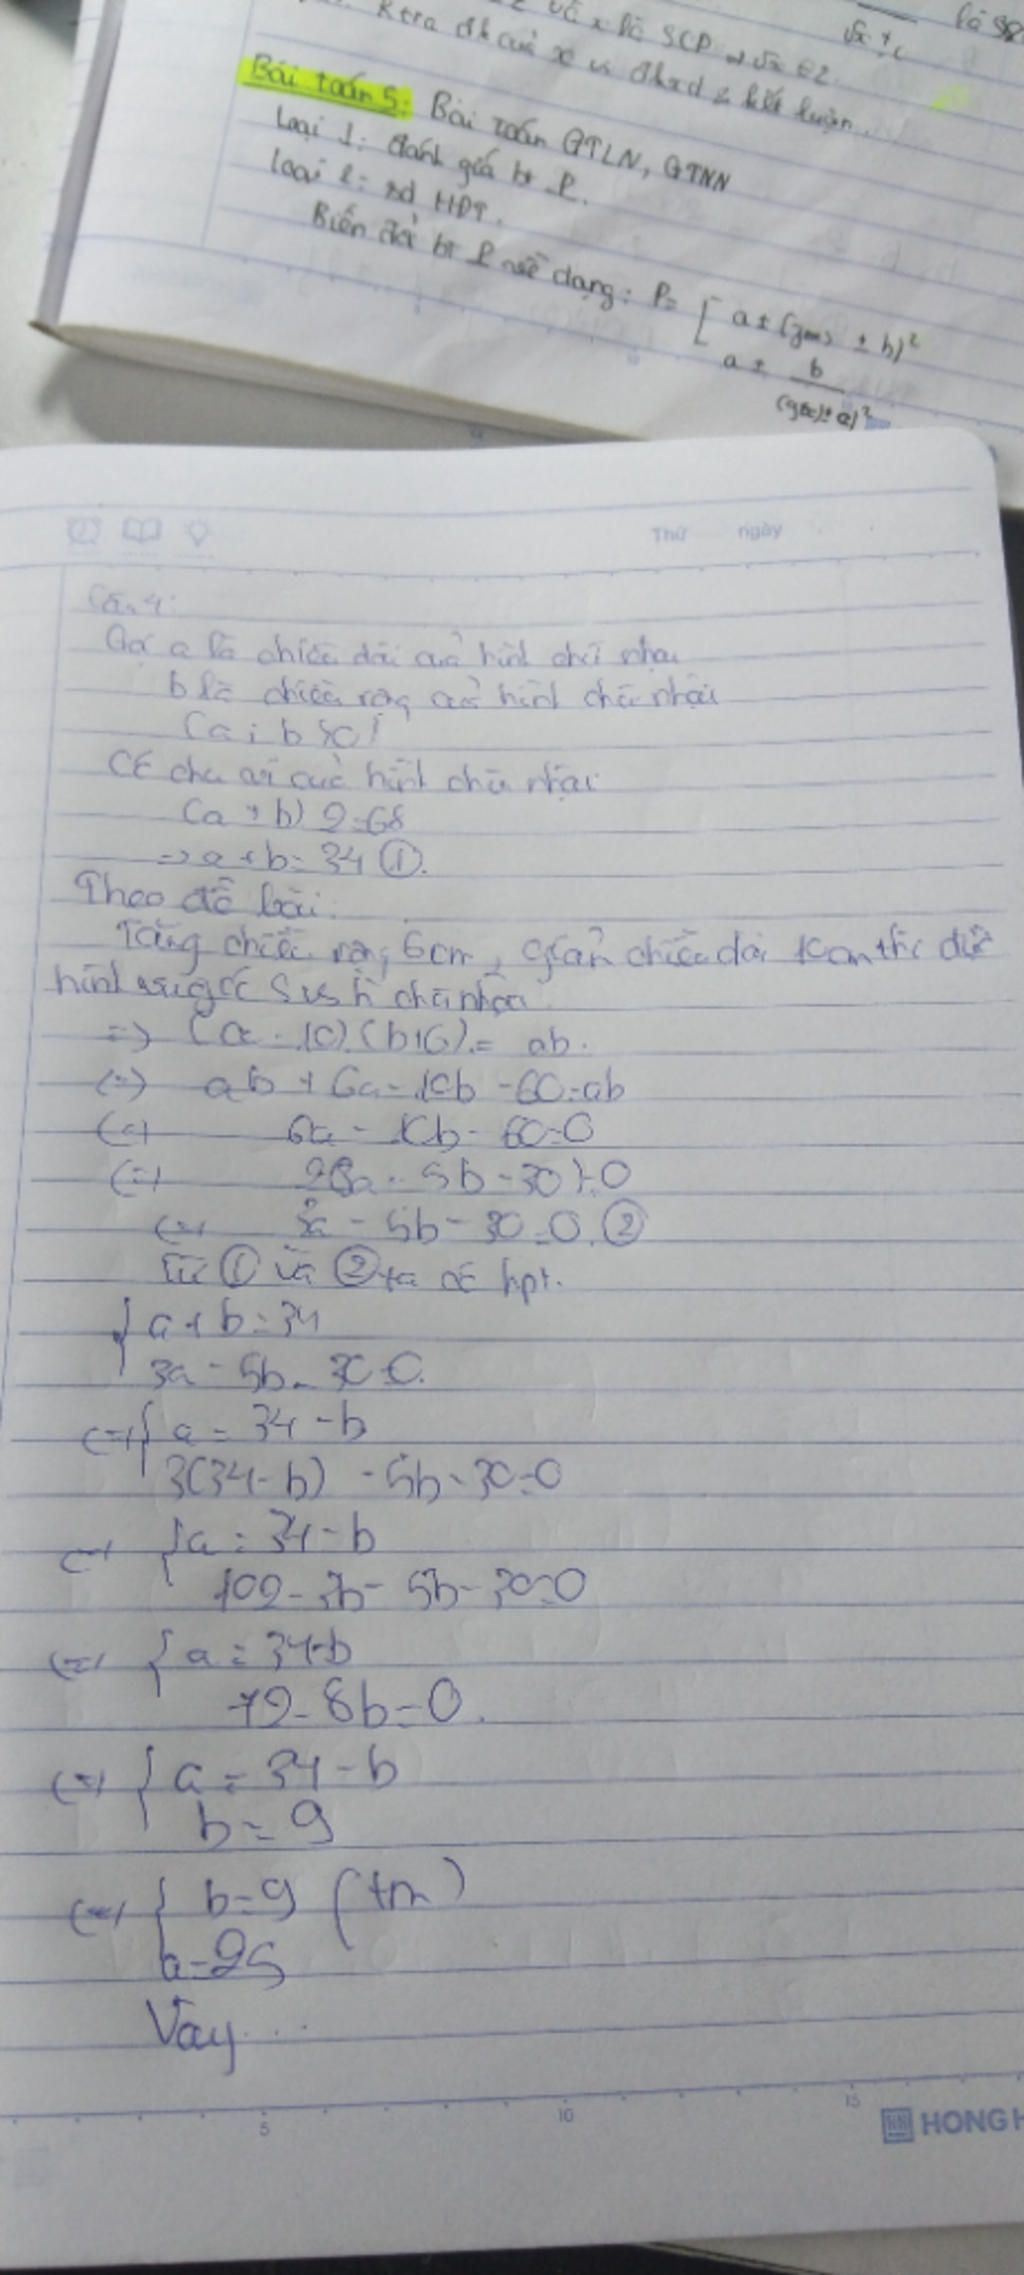 và x là SCP → √x ∈ Z.
√x + c
là
Ktra đk của x vs đkxđ & kết luận.
Bài toán 5: Bài toán GTLN, GTNN
Loại 1: đánh giá bt P.
loại 2: xđ HPT.
Biến đổi bt P về dạng: P = [ a ± (g(x) ± b)²
a ± b
(g(x) ± c)²
Thứ ngày
Câu 4:
Gọi a là chiều dài của hình chữ nhật
b là chiều rộng của hình chữ nhật
(a; b > 0)
Có chu vi của hình chữ nhật:
(a + b) 2 = 68
=> a + b = 34 ①.
Theo đề bài:
Tăng chiều rộng 6cm, giảm chiều dài 10cm thì được
hình có S vs h chữ nhật
=> (a - 10).(b+6) = ab.
(=) ab + 6a - 10b - 60 = ab
(=) 6a - 10b - 60 = 0
(=) 2(3a - 5b - 30) = 0
(=) 3a - 5b - 30 = 0. ②
Từ ① và ② ta có hpt.
{ a + b = 34
3a - 5b - 30 = 0.
(=) { a = 34 - b
3(34 - b) - 5b - 30 = 0
(=) { a = 34 - b
102 - 3b - 5b - 30 = 0
(=) { a = 34 - b
72 - 8b = 0.
(=) { a = 34 - b
b = 9
(=) { b = 9 (tm)
a = 25
Vậy ...
5 10 15
HONG H